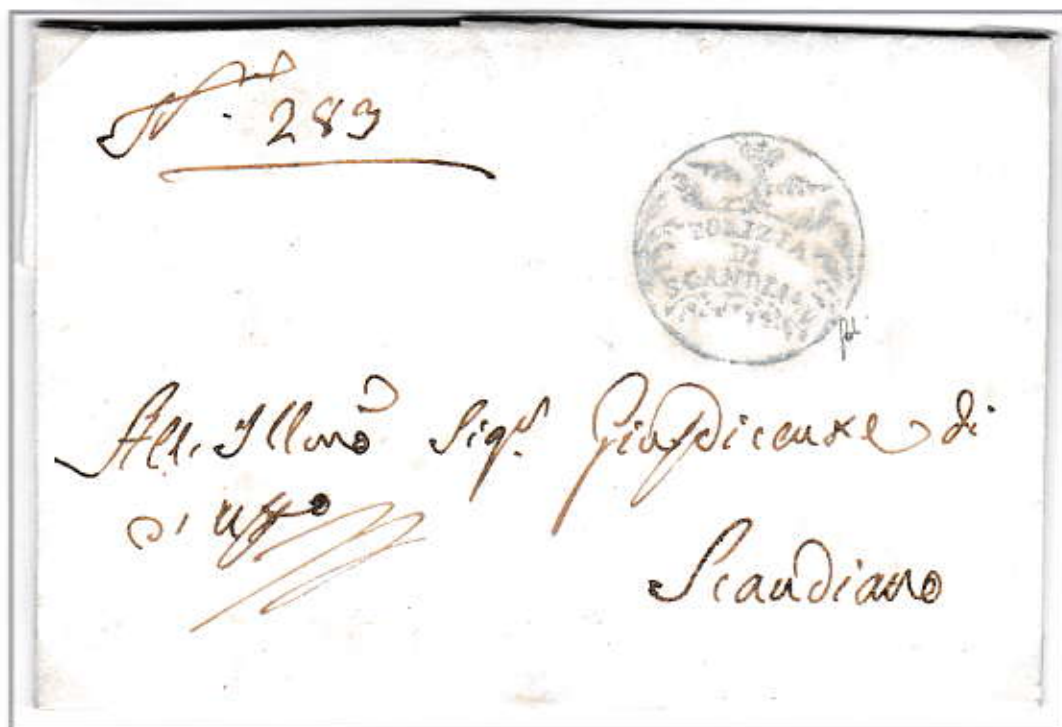 N. 283
POLIZIA
DI
SCANDIANO
All. Illmo Sigr. Giusdicente di
Scandiano
d'uffo